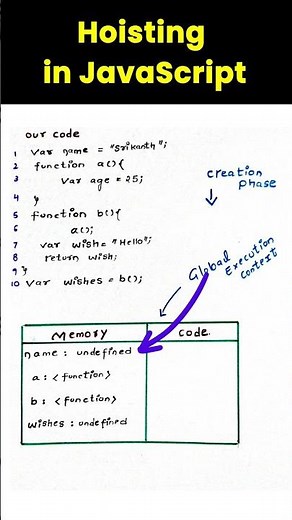 Hoisting
in JavaScript
our code
1 Var name = "Srikanth";
2 function a(){
3 Var age = 25;
4 }
5 function b(){
6 a();
7 var wish= "Hello";
8 return wish;
9 }
10 Var wishes = b();
creation
phase
Global Execution
context
Memory code.
name : undefined
a : <function>
b : <function>
wishes : undefined